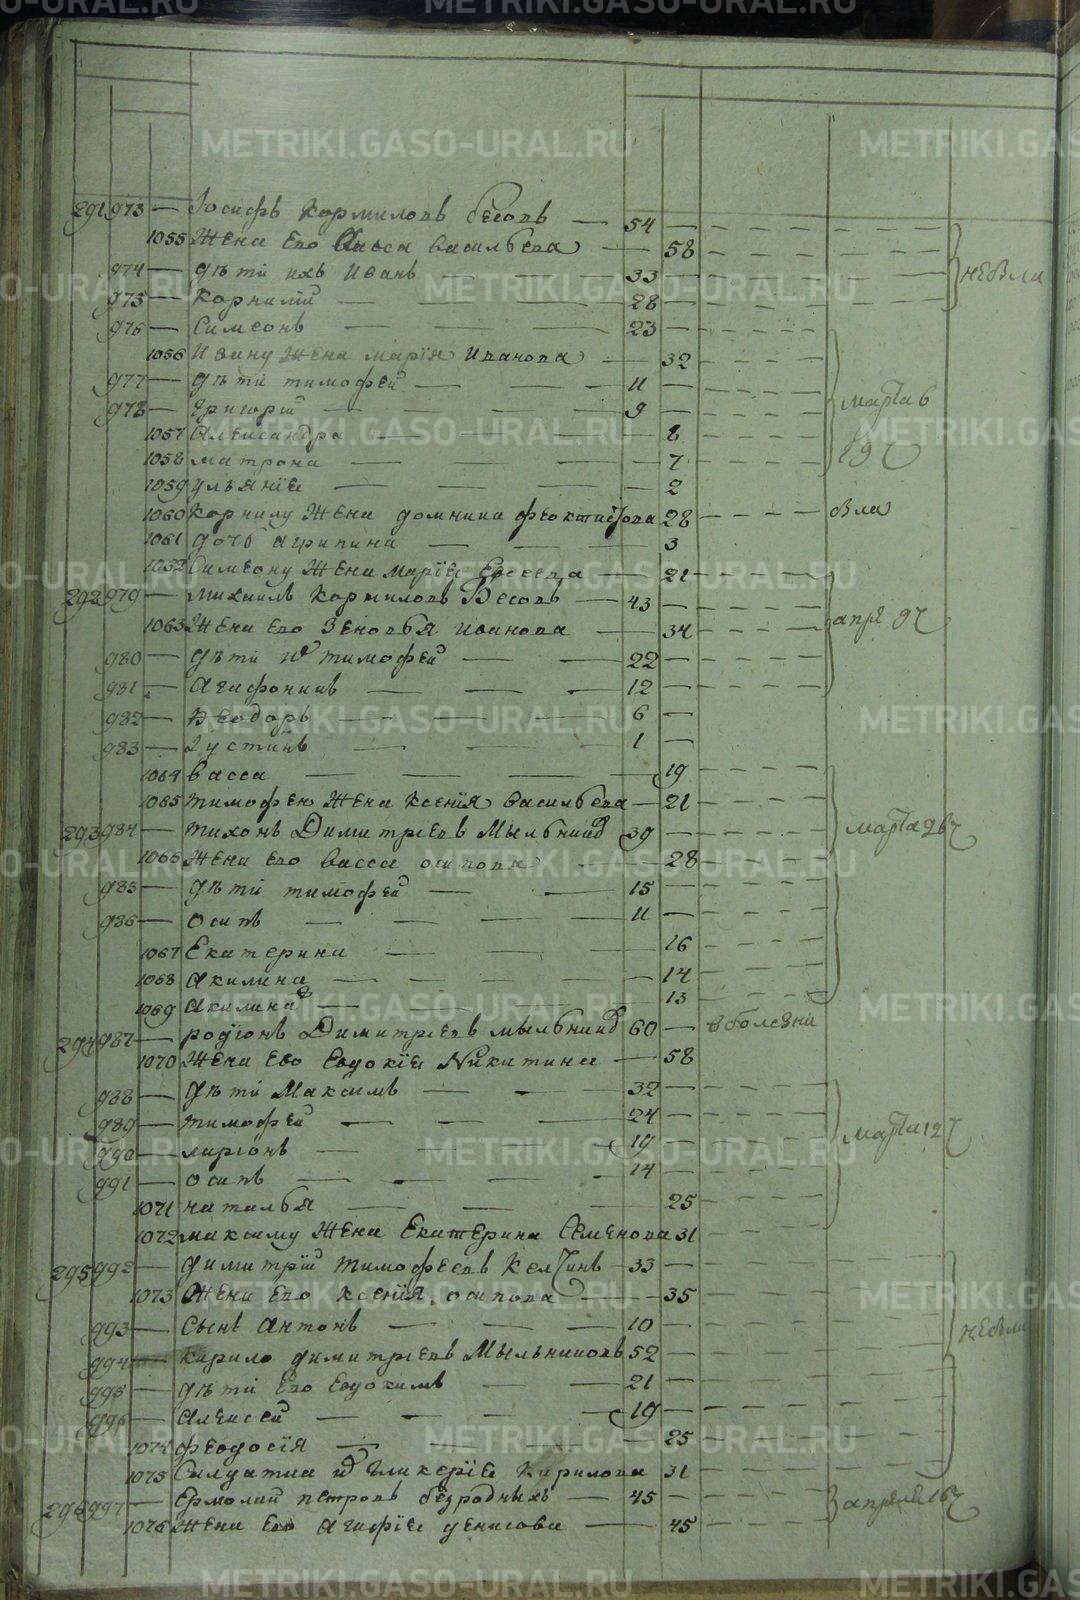 291 973 — Іосифъ Кормиловъ бесовъ — 54
1055 Жена Его Васса Васильева — 58
974 — дѣти ихъ Иванъ — 33
975 — Корнилій — 28
976 — Симеонъ — 23
1056 Ивану Жена Марія Иванова — 32
977 — дѣти тимофей — 11
978 — григорій — 9
1057 Александра — 8
1058 матрона — 7
1059 ульянія — 2
1060 Корнилу Жена домника феоктистова 28
1061 дочь агрипина — 3
1062 Симеону Жена Марія Евсеева — 21
292 979 — михаилъ Кормиловъ Бесовъ — 43
1063 Жена Его Зеновья Иванова — 34
980 — дѣти тимофей — 22
981 — Агафоникъ — 12
982 — Феодоръ — 6
983 — Іустинъ — 1
1064 Васса — 19
1065 тимофею Жена Ксенія Васильева — 21
293 984 — тихонъ Димитріевъ Мыльников 39
1066 Жена Его Васса осипова — 28
985 — дѣти тимофей — 15
986 — осипъ — 11
1067 Екатерина — 16
1068 Акилина — 14
1069 Акилина — 13
294 987 — родіонъ Димитріевъ мыльников 60 — в болезни
1070 Жена Ево Евдокія Никитина — 58
988 — дѣти Максимъ — 32
989 — тимофей — 24
990 — ларіонъ — 19
991 — осипъ — 14
1071 наталья — 25
1072 максиму Жена Екатерина Семенова 31
295 992 — димитрій тимофеевъ — 33
1073 Жена Его Ксенія осипова — 35
993 — Сынъ Антонъ — 10
994 — Кирило димитріевъ Мыльниковъ 52
995 — дѣти Его Евдокимъ — 21
996 — Алексей — 19
1074 феодосія — 25
1075 Салдатка гликерія Кирилова 31
296 997 — Ермолай петровъ безродныхъ — 45
1076 Жена Его Агафія денисова — 45
небыли
марта 6
9
была
апр 9
марта 26
марта 12
небыли
апреля 16
METRIKI.GASO-URAL.RU